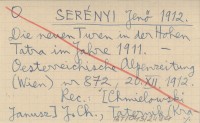 SERÉNYI Jenő 1912.
Die neuen Turen in der Hohen
Tatra im Jahre 1911. —
Oesterreichische Alpenzeitung
(Wien) nr 872, 20.XII. 1912.
Rec. [Chmielowski
Janusz] J. Ch.,